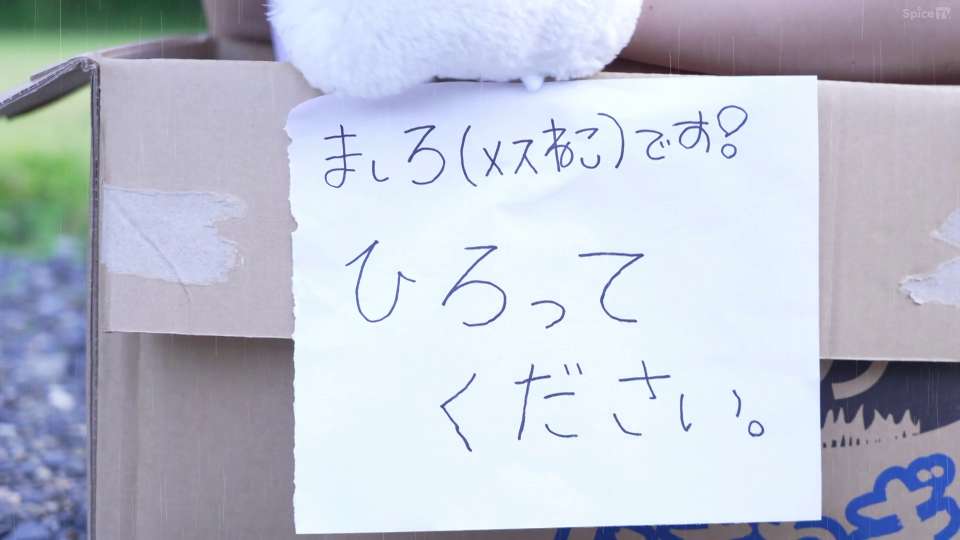 SpiceTV
ましろ(メスねこ)です!
ひろって
ください。